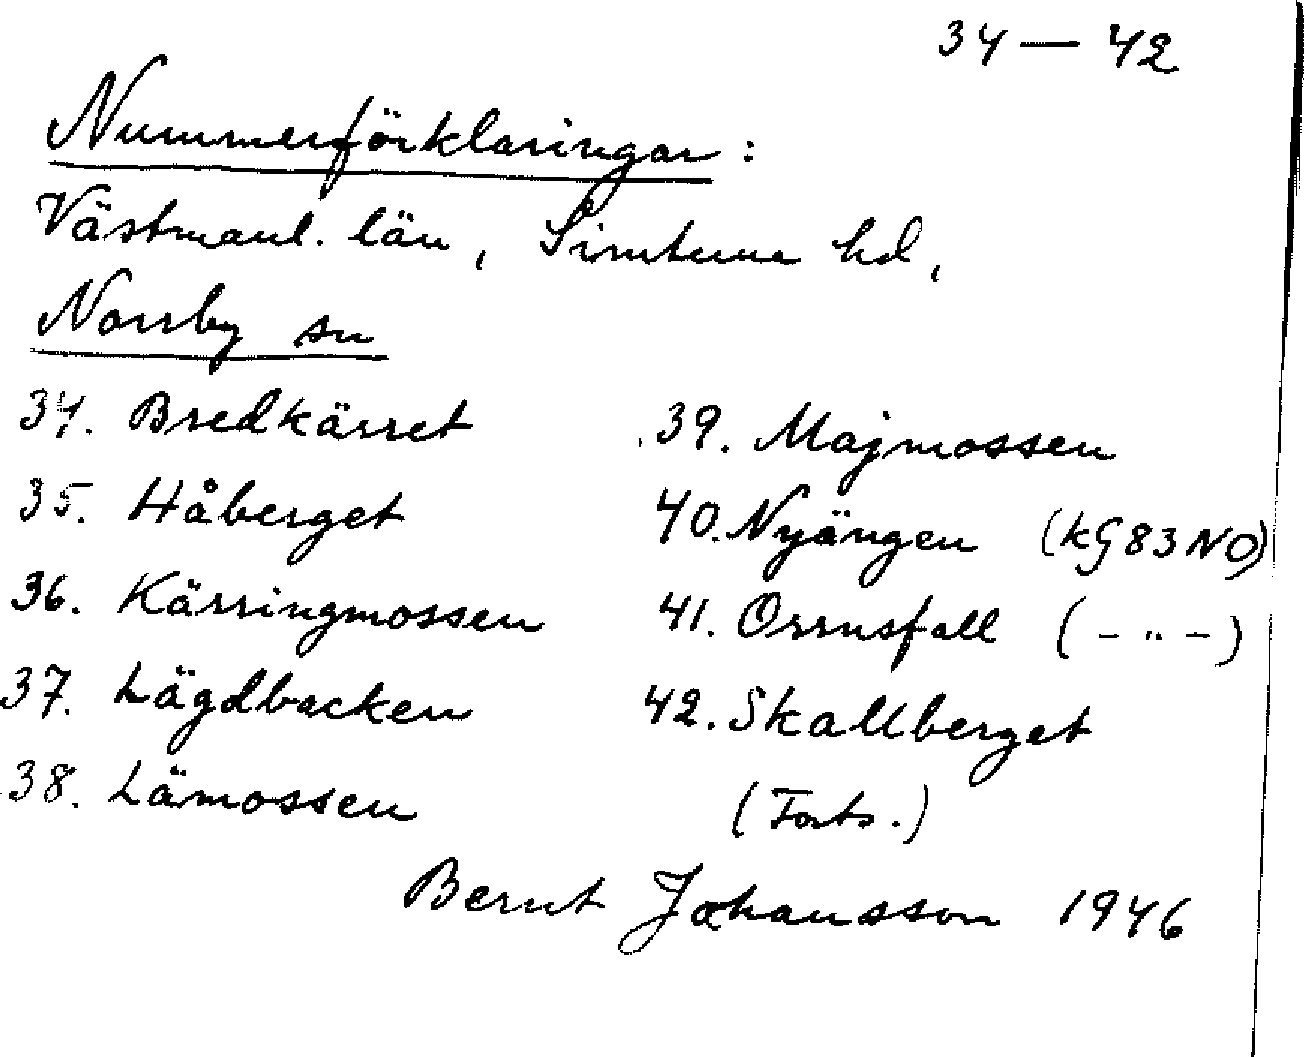 34 — 42
Nummerförklaringar:
Västmanl. län, Simtuna hd,
Norrby sn
34. Bredkärret
35. Håberget
36. Kärringmossen
37. Lägdbacken
38. Lämossen
39. Majmossen
40. Nyängen (kG 83 NO)
41. Orrnsfall (– " –)
42. Skallberget
(Forts.)
Bernt Johansson 1946